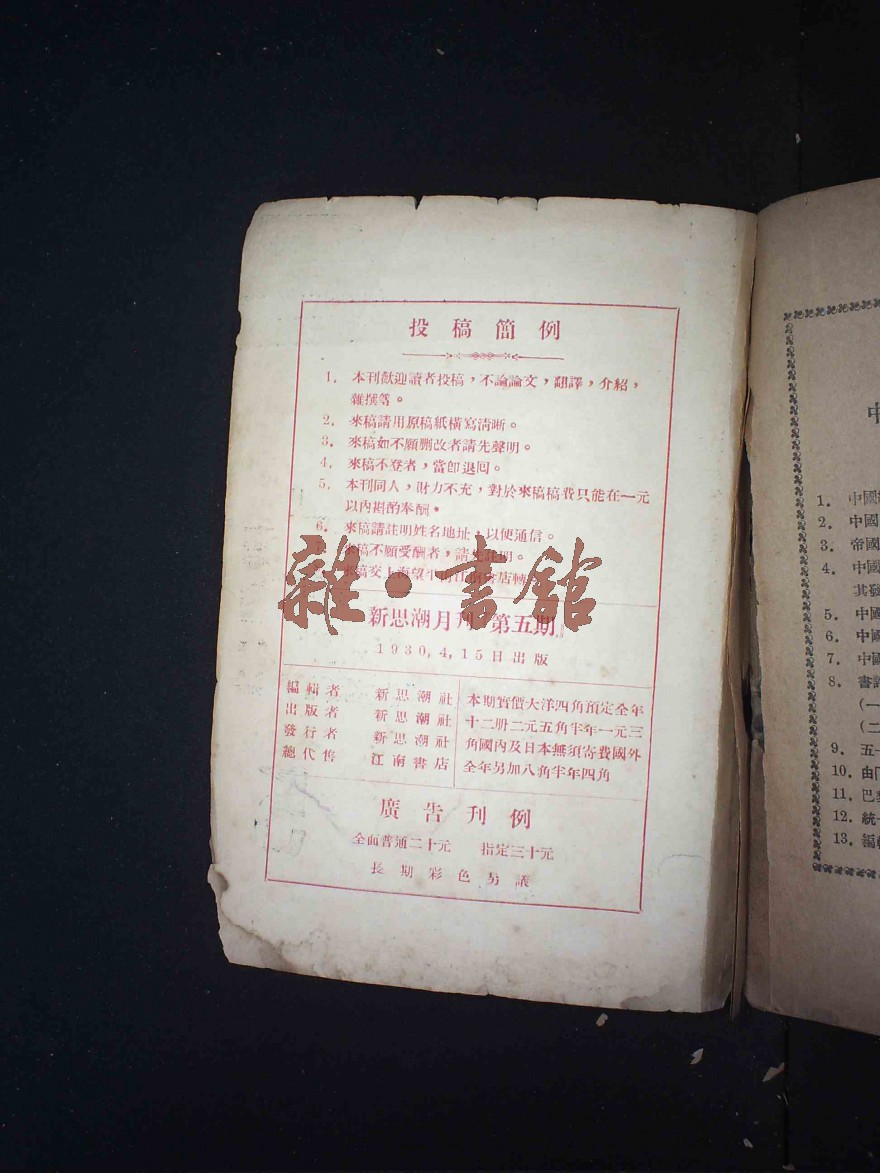 投稿簡例
1. 本刊歡迎讀者投稿，不論論文，翻譯，介紹，
雜撰等。
2. 來稿請用原稿紙橫寫清晰。
3. 來稿如不願删改者請先聲明。
4. 來稿不登者，當卽退囘。
5. 本刊同人，財力不充，對於來稿稿費只能在一元
以內斟酌奉酬。
6. 來稿請註明姓名地址，以便通信。
來稿不願受酬者，請先註明。
稿交上海望平街江南書店轉
雜·書館
新思潮月刊 第五期
1930, 4, 15日出版
編輯者 新思潮社
出版者 新思潮社
發行者 新思潮社
總代售 江南書店
本期實價大洋四角預定全年
十二册二元五角半年一元三
角國內及日本無須寄費國外
全年另加八角半年四角
廣告刊例
全面普通二十元 指定三十元
長期彩色另議
中
1. 中國
2. 中國
3. 帝國
4. 中國
其發
5. 中國
6. 中國
7. 中國
8. 書評
(一
(二
9. 五一
10. 由
11. 巴
12. 統一
13. 編輯